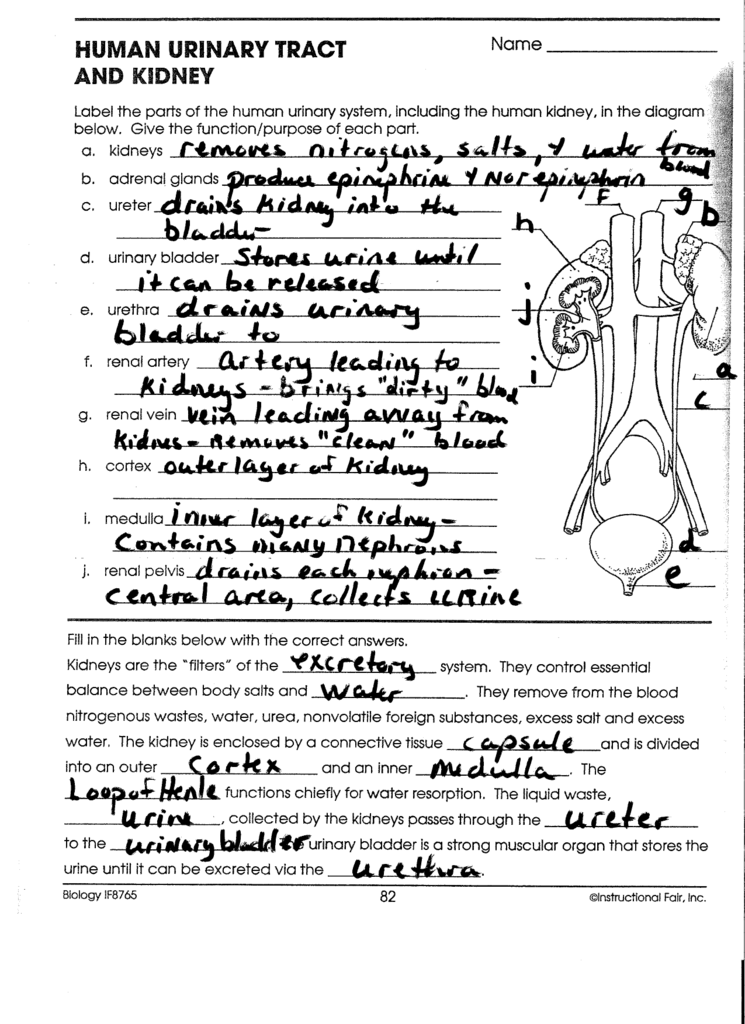 HUMAN URINARY TRACT Name
AND KIDNEY
Label the parts of the human urinary system, including the human kidney, in the diagram
below. Give the function/purpose of each part.
a. kidneys removes nitrogens, salts, & water from
blood
b. adrenal glands produce epiniphrine & Nor epiniphrin
c. ureter drains kidney into the
bladder
d. urinary bladder Stores urine until
it can be released
e. urethra drains urinary
bladder to
f. renal artery artery leading to
kidneys - brings "dirty" blood
g. renal vein vein leading away from
kidnes - Removes "clean" blood
h. cortex outer layer of kidney
i. medulla inner layer of kidney -
Contains many nephrons
j. renal pelvis drains each nephron -
central area, collects urine
f
g
b
h
j
i
a
c
d
e
Fill in the blanks below with the correct answers.
Kidneys are the "filters" of the excretory system. They control essential
balance between body salts and water. They remove from the blood
nitrogenous wastes, water, urea, nonvolatile foreign substances, excess salt and excess
water. The kidney is enclosed by a connective tissue capsule and is divided
into an outer Cortex and an inner Medulla. The
Loop of Henle functions chiefly for water resorption. The liquid waste,
urine, collected by the kidneys passes through the ureter
to the urinary bladder urinary bladder is a strong muscular organ that stores the
urine until it can be excreted via the urethra.
Biology IF8765 82 ©Instructional Fair, Inc.